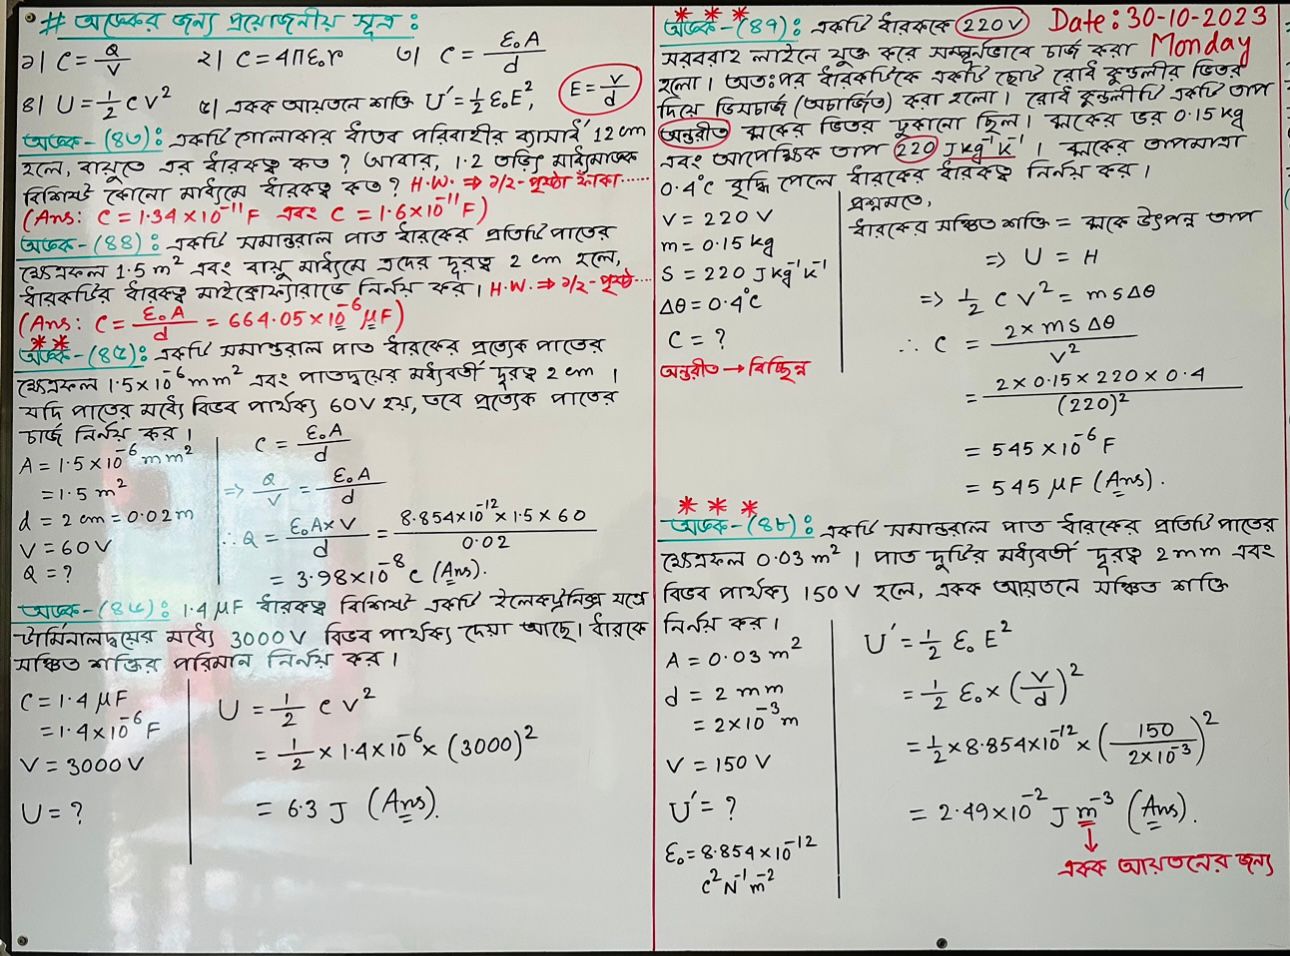 # অংকের জন্য প্রয়োজনীয় সূত্র :
১। C = Q/V ২। C = 4πε₀r ৩। C = ε₀A/d
৪। U = ½ CV² ৫। একক আয়তনে শক্তি U′ = ½ ε₀E², E = V/d
অংক-(৪৩): একটি গোলাকার ধাতব পরিবাহীর ব্যাসার্ধ 12 cm
হলে, বায়ুতে এর ধারকত্ব কত? আবার, 1.2 তড়িৎ মাধ্যমাঙ্ক
বিশিষ্ট কোনো মাধ্যমে ধারকত্ব কত? H.W. ⇒ ১/২-পৃষ্ঠা ফাঁকা......
(Ans: C = 1.34×10⁻¹¹F এবং C = 1.6×10⁻¹¹F)
অংক-(৪৪): একটি সমান্তরাল পাত ধারকের প্রতিটি পাতের
ক্ষেত্রফল 1.5 m² এবং বায়ু মাধ্যমে এদের দূরত্ব 2 cm হলে,
ধারকটির ধারকত্ব মাইক্রোফ্যারাডে নির্ণয় কর। H.W. ⇒ ১/২-পৃষ্ঠা....
(Ans: C = ε₀A/d = 664.05×10⁻⁶ μF)
* *
অংক-(৪৫): একটি সমান্তরাল পাত ধারকের প্রত্যেক পাতের
ক্ষেত্রফল 1.5×10⁻⁶ mm² এবং পাতদ্বয়ের মধ্যবর্তী দূরত্ব 2 cm ।
যদি পাতের মধ্যে বিভব পার্থক্য 60V হয়, তবে প্রত্যেক পাতের
চার্জ নির্ণয় কর।
A = 1.5×10⁻⁶ mm²
= 1.5 m²
d = 2 cm = 0.02 m
V = 60 V
Q = ?
C = ε₀A/d
⇒ Q/V = ε₀A/d
∴ Q = ε₀A×V/d = 8.854×10⁻¹²×1.5×60/0.02
= 3.98×10⁻⁸ C (Ans).
অংক-(৪৬): 1.4 μF ধারকত্ব বিশিষ্ট একটি ইলেকট্রনিক্স যন্ত্রে
টার্মিনালদ্বয়ের মধ্যে 3000V বিভব পার্থক্য দেয়া আছে। ধারকে
সঞ্চিত শক্তির পরিমান নির্ণয় কর।
C = 1.4 μF
= 1.4×10⁻⁶ F
V = 3000 V
U = ?
U = ½ CV²
= ½ × 1.4×10⁻⁶ × (3000)²
= 6.3 J (Ans).
* * *
Date: 30-10-2023
Monday
অংক-(৪৭): একটি ধারককে 220V
সরবরাহ লাইনে যুক্ত করে সম্পূর্নভাবে চার্জ করা
হলো। অতঃপর ধারকটিকে একটি ছোট রোধ কুন্ডলীর ভিতর
দিয়ে ডিসচার্জ (অচার্জিত) করা হলো। রোধ কুন্ডলীটি একটি তাপ
অন্তরীত ব্লকের ভিতর ঢুকানো ছিল। ব্লকের ভর 0.15 kg
এবং আপেক্ষিক তাপ 220 Jkg⁻¹K⁻¹ । ব্লকের তাপমাত্রা
0.4°C বৃদ্ধি পেলে ধারকের ধারকত্ব নির্ণয় কর।
V = 220 V
m = 0.15 kg
S = 220 Jkg⁻¹K⁻¹
Δθ = 0.4°C
C = ?
অন্তরীত → বিচ্ছিন্ন
প্রশ্নমতে,
ধারকের সঞ্চিত শক্তি = ব্লকে উৎপন্ন তাপ
⇒ U = H
⇒ ½ CV² = msΔθ
∴ C = 2×msΔθ/V²
= 2×0.15×220×0.4/(220)²
= 545×10⁻⁶ F
= 545 μF (Ans).
* * *
অংক-(৪৮): একটি সমান্তরাল পাত ধারকের প্রতিটি পাতের
ক্ষেত্রফল 0.03 m² । পাত দুটির মধ্যবর্তী দূরত্ব 2 mm এবং
বিভব পার্থক্য 150 V হলে, একক আয়তনে সঞ্চিত শক্তি
নির্নয় কর।
A = 0.03 m²
d = 2 mm
= 2×10⁻³ m
V = 150 V
U′ = ?
ε₀ = 8.854×10⁻¹²
C²N⁻¹m⁻²
U′ = ½ ε₀E²
= ½ ε₀ × (V/d)²
= ½ × 8.854×10⁻¹² × (150/2×10⁻³)²
= 2.49×10⁻² J m⁻³ (Ans).
একক আয়তনের জন্য